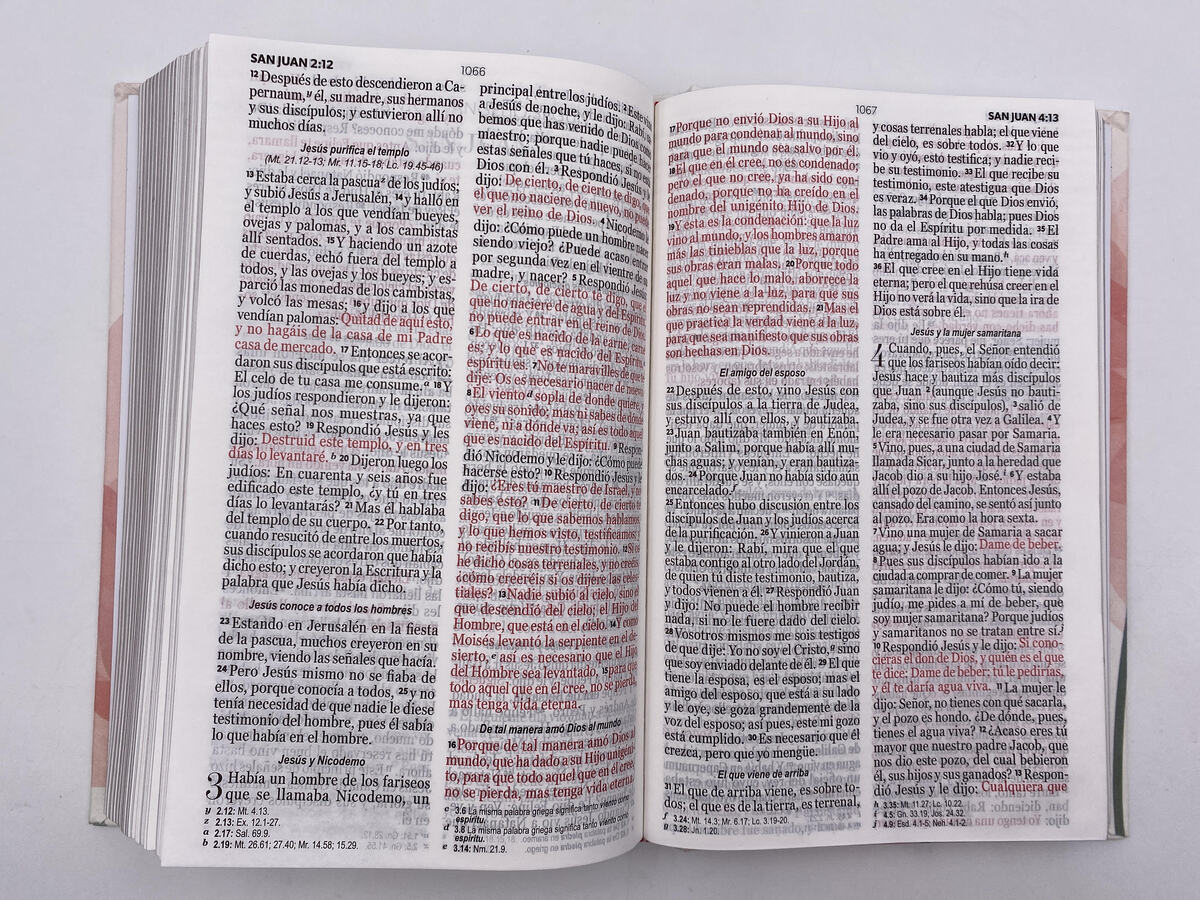 SAN JUAN 2:12
1066
12 Después de esto descendieron a Ca-
pernaum,y él, su madre, sus hermanos
y sus discípulos; y estuvieron allí no
muchos días.
Jesús purifica el templo
(Mt. 21.12-13; Mr. 11.15-18; Lc. 19.45-46)
13 Estaba cerca la pascuaz de los judíos;
y subió Jesús a Jerusalén, 14 y halló en
el templo a los que vendían bueyes,
ovejas y palomas, y a los cambistas
allí sentados. 15 Y haciendo un azote
de cuerdas, echó fuera del templo a
todos, y las ovejas y los bueyes; y es-
parció las monedas de los cambistas,
y volcó las mesas; 16 y dijo a los que
vendían palomas: Quitad de aquí esto,
y no hagáis de la casa de mi Padre
casa de mercado. 17 Entonces se acor-
daron sus discípulos que está escrito:
El celo de tu casa me consume.a 18 Y
los judíos respondieron y le dijeron:
¿Qué señal nos muestras, ya que
haces esto? 19 Respondió Jesús y les
dijo: Destruid este templo, y en tres
días lo levantaré.b 20 Dijeron luego los
judíos: En cuarenta y seis años fue
edificado este templo, ¿y tú en tres
días lo levantarás? 21 Mas él hablaba
del templo de su cuerpo. 22 Por tanto,
cuando resucitó de entre los muertos,
sus discípulos se acordaron que había
dicho esto; y creyeron la Escritura y la
palabra que Jesús había dicho.
Jesús conoce a todos los hombres
23 Estando en Jerusalén en la fiesta
de la pascua, muchos creyeron en su
nombre, viendo las señales que hacía.
24 Pero Jesús mismo no se fiaba de
ellos, porque conocía a todos, 25 y no
tenía necesidad de que nadie le diese
testimonio del hombre, pues él sabía
lo que había en el hombre.
Jesús y Nicodemo
3 Había un hombre de los fariseos
que se llamaba Nicodemo, un
y 2.12: Mt. 4.13.
z 2.13: Ex. 12.1-27.
a 2.17: Sal. 69.9.
b 2.19: Mt. 26.61; 27.40; Mr. 14.58; 15.29.
principal entre los judíos. 2 Este vino
a Jesús de noche, y le dijo: Rabí, sa-
bemos que has venido de Dios como
maestro; porque nadie puede hacer
estas señales que tú haces, si no está
Dios con él. 3 Respondió Jesús y le
dijo: De cierto, de cierto te digo, que
el que no naciere de nuevo, no puede
ver el reino de Dios. 4 Nicodemo le
dijo: ¿Cómo puede un hombre nacer
siendo viejo? ¿Puede acaso entrar
por segunda vez en el vientre de su
madre, y nacer? 5 Respondió Jesús:
De cierto, de cierto te digo, que el
que no naciere de agua y del Espíritu,
no puede entrar en el reino de Dios.
6 Lo que es nacido de la carne, carne
es; y lo que es nacido del Espíritu,
espíritu es.c 7 No te maravilles de que te
dije: Os es necesario nacer de nuevo.
8 El vientod sopla de donde quiere, y
oyes su sonido; mas ni sabes de dónde
viene, ni a dónde va; así es todo aquel
que es nacido del Espíritu. 9 Respon-
dió Nicodemo y le dijo: ¿Cómo puede
hacerse esto? 10 Respondió Jesús y le
dijo: ¿Eres tú maestro de Israel, y no
sabes esto? 11 De cierto, de cierto te
digo, que lo que sabemos hablamos,
y lo que hemos visto, testificamos; y
no recibís nuestro testimonio. 12 Si os
he dicho cosas terrenales, y no creéis,
¿cómo creeréis si os dijere las celes-
tiales? 13 Nadie subió al cielo, sino el
que descendió del cielo; el Hijo del
Hombre, que está en el cielo. 14 Y como
Moisés levantó la serpiente en el de-
sierto,e así es necesario que el Hijo
del Hombre sea levantado, 15 para que
todo aquel que en él cree, no se pierda,
mas tenga vida eterna.
De tal manera amó Dios al mundo
16 Porque de tal manera amó Dios al
mundo, que ha dado a su Hijo unigéni-
to, para que todo aquel que en él cree,
no se pierda, mas tenga vida eterna.
c 3.6 La misma palabra griega significa tanto viento como
espíritu.
d 3.8 La misma palabra griega significa tanto viento como
espíritu.
e 3.14: Nm. 21.9.
1067
SAN JUAN 4:13
17 Porque no envió Dios a su Hijo al
mundo para condenar al mundo, sino
para que el mundo sea salvo por él.
18 El que en él cree, no es condenado;
pero el que no cree, ya ha sido con-
denado, porque no ha creído en el
nombre del unigénito Hijo de Dios.
19 Y esta es la condenación: que la luz
vino al mundo, y los hombres amaron
más las tinieblas que la luz, porque
sus obras eran malas. 20 Porque todo
aquel que hace lo malo, aborrece la
luz y no viene a la luz, para que sus
obras no sean reprendidas. 21 Mas el
que practica la verdad viene a la luz,
para que sea manifiesto que sus obras
son hechas en Dios.
El amigo del esposo
22 Después de esto, vino Jesús con
sus discípulos a la tierra de Judea,
y estuvo allí con ellos, y bautizaba.
23 Juan bautizaba también en Enón,
junto a Salim, porque había allí
muchas aguas; y venían, y eran bautiza-
dos. 24 Porque Juan no había sido aún
encarcelado.f
25 Entonces hubo discusión entre los
discípulos de Juan y los judíos acerca
de la purificación. 26 Y vinieron a Juan
y le dijeron: Rabí, mira que el que
estaba contigo al otro lado del Jordán,
de quien tú diste testimonio, bautiza,
y todos vienen a él. 27 Respondió Juan
y dijo: No puede el hombre recibir
nada, si no le fuere dado del cielo.
28 Vosotros mismos me sois testigos
de que dije: Yo no soy el Cristo,g sino
que soy enviado delante de él. 29 El que
tiene la esposa, es el esposo; mas el
amigo del esposo, que está a su lado
y le oye, se goza grandemente de la
voz del esposo; así pues, este mi gozo
está cumplido. 30 Es necesario que él
crezca, pero que yo mengüe.
El que viene de arriba
31 El que de arriba viene, es sobre to-
dos; el que es de la tierra, es terrenal,
f 3.24: Mt. 14.3; Mr. 6.17; Lc. 3.19-20.
g 3.28: Jn. 1.20.
y cosas terrenales habla; el que viene
del cielo, es sobre todos. 32 Y lo que
vio y oyó, esto testifica; y nadie reci-
be su testimonio. 33 El que recibe su
testimonio, este atestigua que Dios
es veraz. 34 Porque el que Dios envió,
las palabras de Dios habla; pues Dios
no da el Espíritu por medida. 35 El
Padre ama al Hijo, y todas las cosas
ha entregado en su mano.h
36 El que cree en el Hijo tiene vida
eterna; pero el que rehúsa creer en el
Hijo no verá la vida, sino que la ira de
Dios está sobre él.
Jesús y la mujer samaritana
4 Cuando, pues, el Señor entendió
que los fariseos habían oído decir:
Jesús hace y bautiza más discípulos
que Juan 2 (aunque Jesús no bauti-
zaba, sino sus discípulos), 3 salió de
Judea, y se fue otra vez a Galilea. 4 Y
le era necesario pasar por Samaria.
5 Vino, pues, a una ciudad de Samaria
llamada Sicar, junto a la heredad que
Jacob dio a su hijo José.i 6 Y estaba
allí el pozo de Jacob. Entonces Jesús,
cansado del camino, se sentó así junto
al pozo. Era como la hora sexta.
7 Vino una mujer de Samaria a sacar
agua; y Jesús le dijo: Dame de beber.
8 Pues sus discípulos habían ido a la
ciudad a comprar de comer. 9 La mujer
samaritana le dijo: ¿Cómo tú, siendo
judío, me pides a mí de beber, que
soy mujer samaritana? Porque judíos
y samaritanos no se tratan entre sí.j
10 Respondió Jesús y le dijo: Si cono-
cieras el don de Dios, y quién es el que
te dice: Dame de beber; tú le pedirías,
y él te daría agua viva. 11 La mujer le
dijo: Señor, no tienes con qué sacarla,
y el pozo es hondo. ¿De dónde, pues,
tienes el agua viva? 12 ¿Acaso eres tú
mayor que nuestro padre Jacob, que
nos dio este pozo, del cual bebieron
él, sus hijos y sus ganados? 13 Respon-
dió Jesús y le dijo: Cualquiera que
h 3.35: Mt. 11.27; Lc. 10.22.
i 4.5: Gn. 33.19; Jos. 24.32.
j 4.9: Esd. 4.1-5; Neh. 4.1-2.